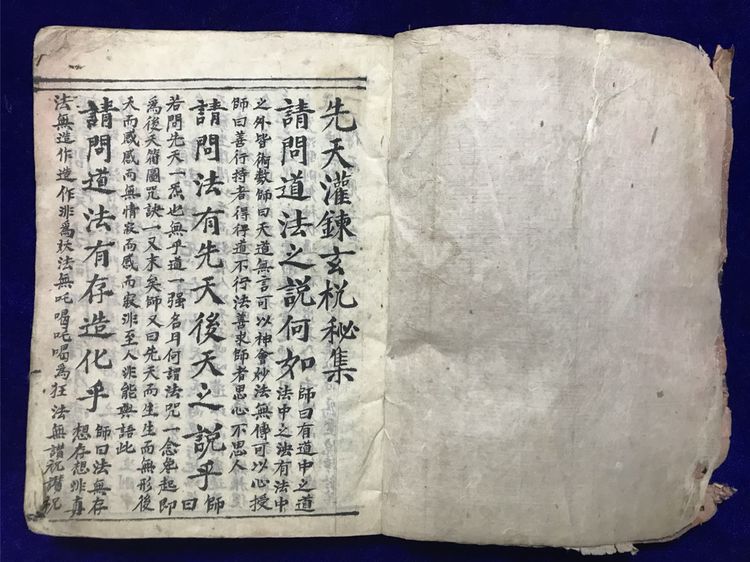 先天灌鍊玄棁秘集
請問道法之說何如 師曰有道中之道
法中之法有法中
之外皆術數師曰天道無言可以神會妙法無傳可以心授
師曰善行持者得得道不行法善求師者思心不思人
請問法有先天後天之說乎 師
曰
若問先天一炁也無乎道一强名耳何謂法咒一念舉起即
爲後天符圖咒訣一又末矣師又曰先天而生生而無形後
天而感感而無情寂而感而寂非至人非能與語此
請問道法有存造化乎 師曰法無存
想存想非真
法無造作造作非爲妖法無吒喝吒喝為狂 法無讃祝讃祝